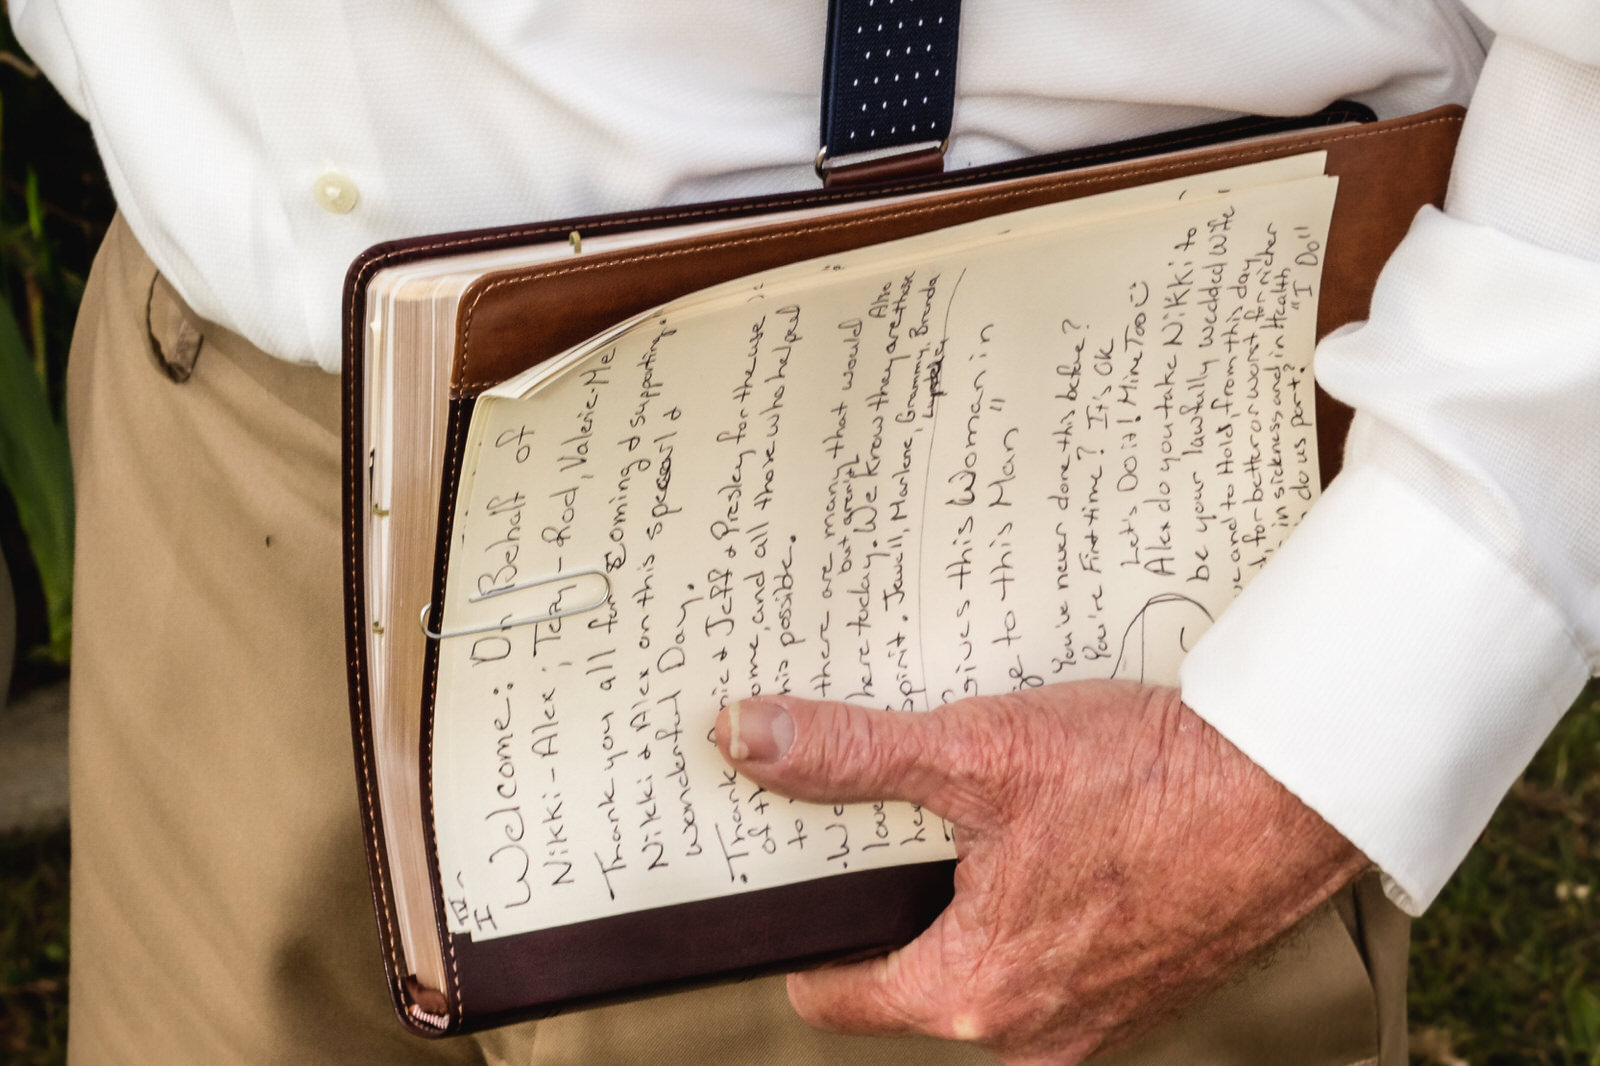 IV
I
Welcome: On Behalf of
Nikki - Alex ; Terry - Rod, Valerie - Me
Thank you all for coming & supporting.
Nikki & Alex on this special &
wonderful Day.
• Thank & Jeff & Presley for the use
of ome, and all those who helped
to his possible.
• We there are many that would
but aren't
love here today. We know they are Also
he spirit. Jewell, Marlene, Grammy, Brenda
those
gives this Woman in
ge to this Man"
You've never done this before?
You're First time? It's OK
Let's Do it! Mine Too
Alex do you take Nikki to
be your lawfully wedded Wife
ve and to Hold, from this day
for better or worst for richer
in sickness and in Health
do us part? "I Do"